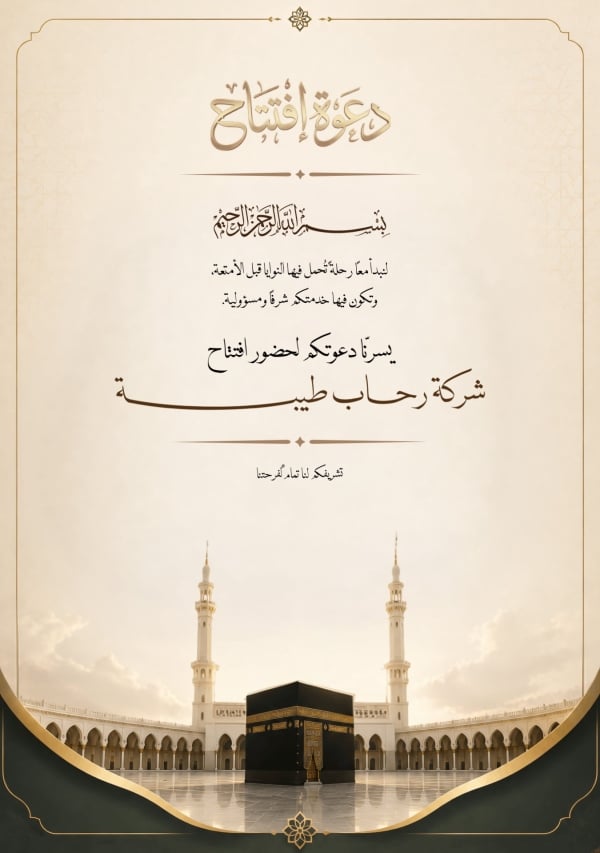 دعوة إفتتاح
بِسْمِ اللَّهِ الرَّحْمَنِ الرَّحِيمِ
لنبدأ معًا رحلةً تُحمل فيها النوايا قبل الأمتعة،
وتكون فيها خدمتكم شرفًا ومسؤولية.
يسرّنا دعوتكم لحضور افتتاح
شركة رحاب طيبة
تشريفكم لنا تمام لفرحتنا